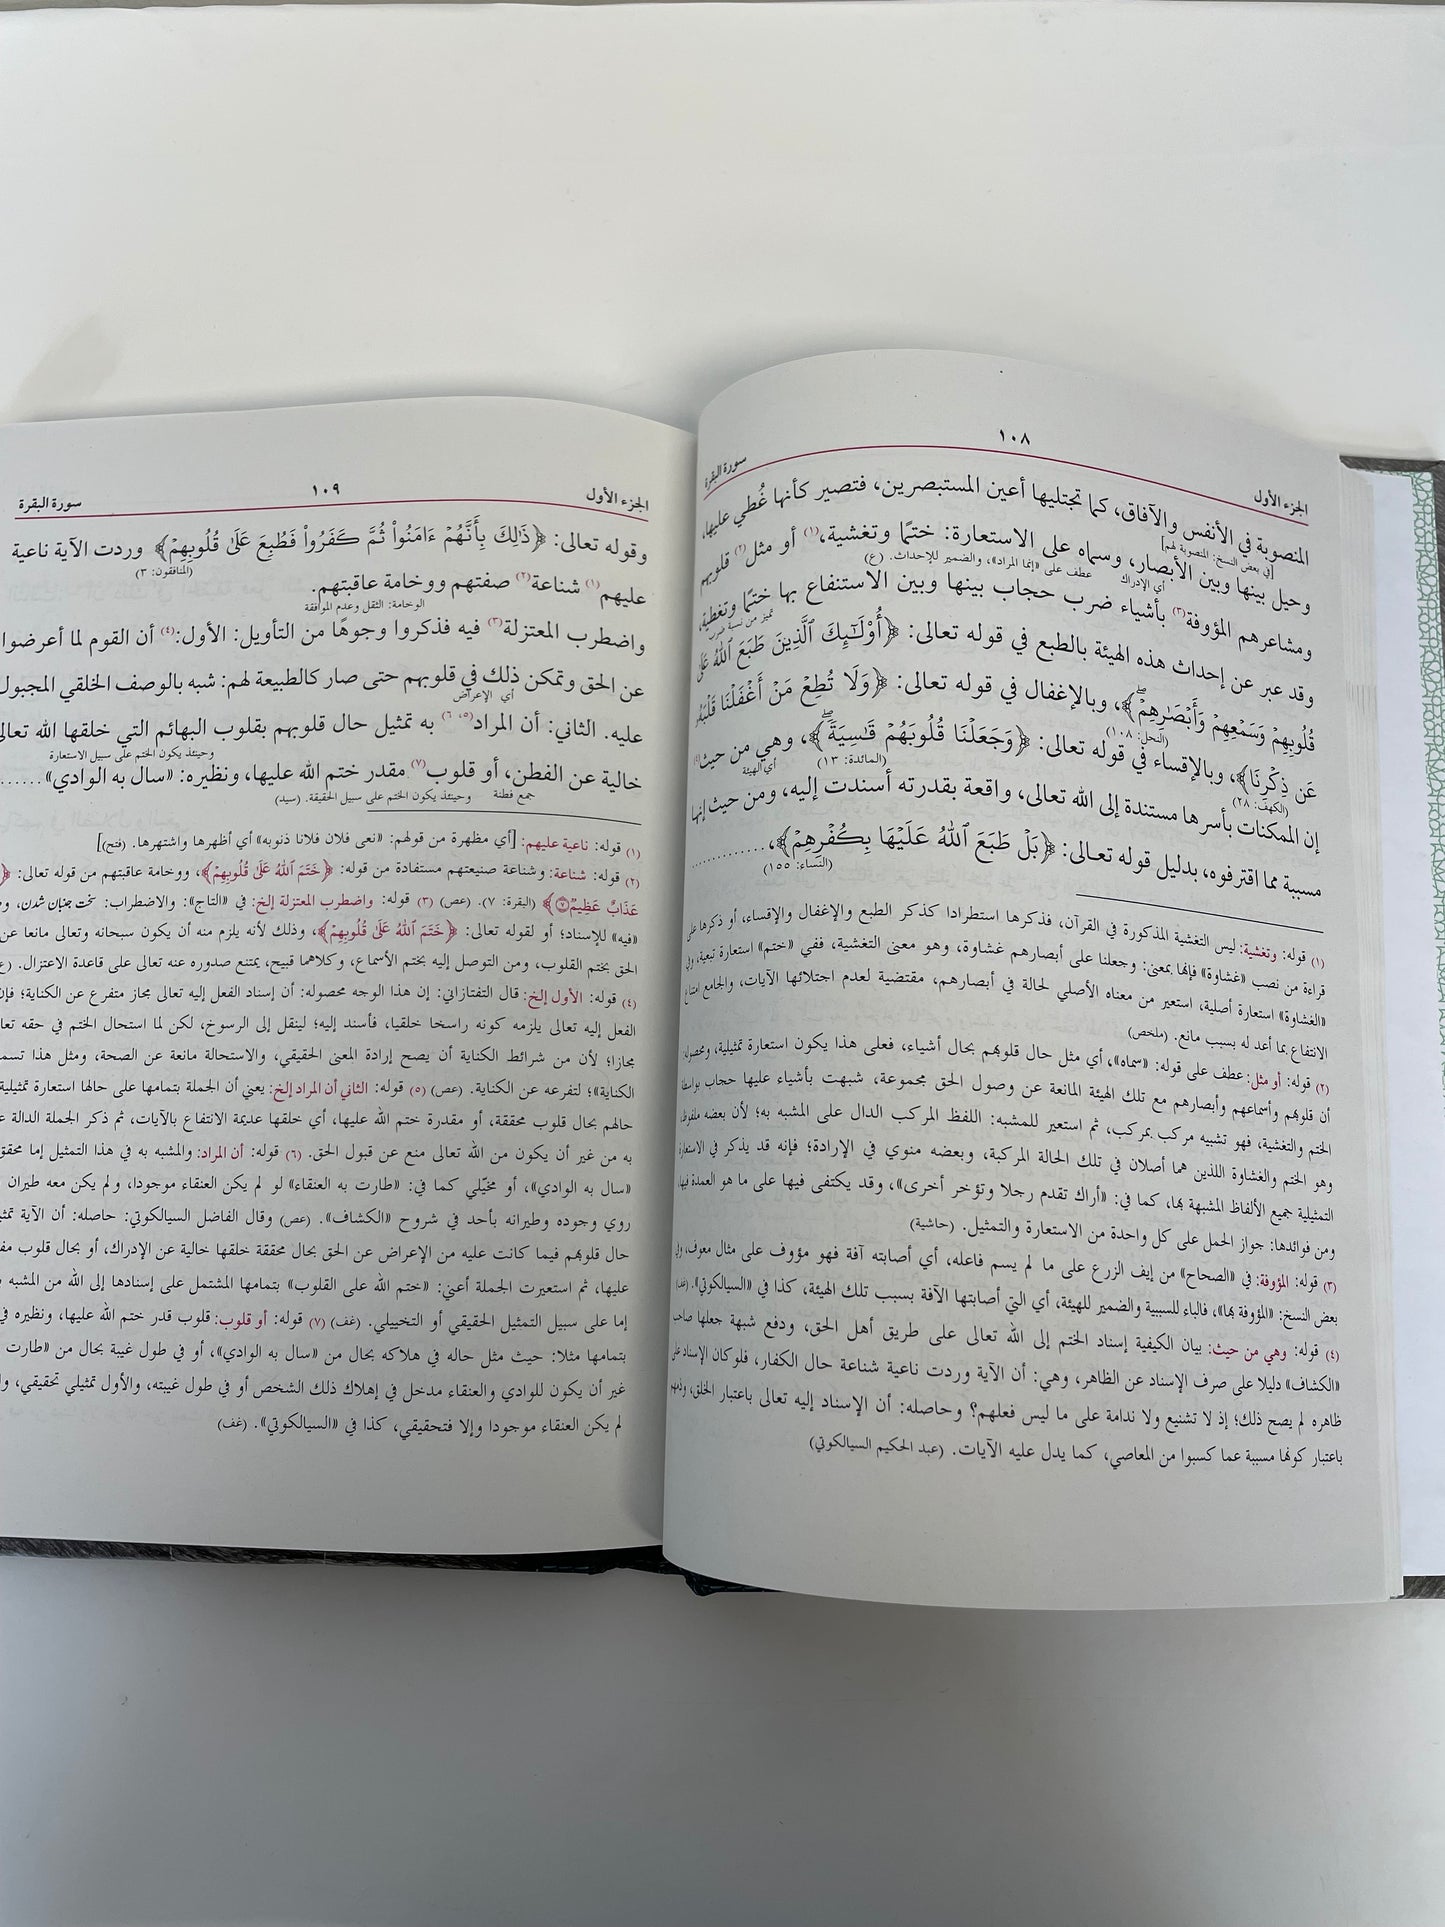 الجزء الأول
١٠٨
سورة البقرة
المنصوبة في الأنفس والآفاق، كما تجتليها أعين المستبصرين، فتصير كأنها غُطي عليها،
[في بعض النسخ: المنصوبة لهم]
وحيل بينها وبين الأبصار، وسماه على الاستعارة: ختمًا وتغشية،(١) أو مثل(٢) قلوبهم
أي الإدراك
عطف على «إنما المراد»، والضمير للإحداث. (ع)
ومشاعرهم المؤوفة(٣) بأشياء ضرب حجاب بينها وبين الاستنفاع بها ختمًا وتغطية،
تميز من نسبة ضرب
وقد عبر عن إحداث هذه الهيئة بالطبع في قوله تعالى: ﴿أُوْلَٰٓئِكَ ٱلَّذِينَ طَبَعَ ٱللَّهُ عَلَىٰ
قُلُوبِهِمۡ وَسَمۡعِهِمۡ وَأَبۡصَٰرِهِمۡۖ﴾، وبالإغفال في قوله تعالى: ﴿وَلَا تُطِعۡ مَنۡ أَغۡفَلۡنَا قَلۡبَهُۥ
(النحل: ١٠٨)
عَن ذِكۡرِنَا﴾، وبالإقساء في قوله تعالى: ﴿وَجَعَلۡنَا قُلُوبَهُمۡ قَٰسِيَةٗۖ﴾، وهي من حيث(٤)
(الكهف: ٢٨)
(المائدة: ١٣)
أي الهيئة
إن الممكنات بأسرها مستندة إلى الله تعالى، واقعة بقدرته أسندت إليه، ومن حيث إنها
مسببة مما اقترفوه، بدليل قوله تعالى: ﴿بَلۡ طَبَعَ ٱللَّهُ عَلَيۡهَا بِكُفۡرِهِمۡ﴾، .............
(النساء: ١٥٥)
(١) قوله: وتغشية: ليس التغشية المذكورة في القرآن، فذكرها استطرادا كذكر الطبع والإغفال والإقساء، أو ذكرها على
قراءة من نصب «غشاوة» فإنها بمعنى: وجعلنا على أبصارهم غشاوة، وهو معنى التغشية، ففي «ختم» استعارة تبعية، وفي
«الغشاوة» استعارة أصلية، استعير من معناه الأصلي لحالة في أبصارهم، مقتضية لعدم اجتلائها الآيات، والجامع امتناع
الانتفاع بما أعد له بسبب مانع. (ملخص)
(٢) قوله: أو مثل: عطف على قوله: «سماه»، أي مثل حال قلوبهم بحال أشياء، فعلى هذا يكون استعارة تمثيلية، ومحصوله:
أن قلوبهم وأسماعهم وأبصارهم مع تلك الهيئة المانعة عن وصول الحق مجموعة، شبهت بأشياء عليها حجاب بواسطة
الختم والتغشية، فهو تشبيه مركب بمركب، ثم استعير للمشبه: اللفظ المركب الدال على المشبه به؛ لأن بعضه ملفوظ،
وهو الختم والغشاوة اللذين هما أصلان في تلك الحالة المركبة، وبعضه منوي في الإرادة؛ فإنه قد يذكر في الاستعارة
التمثيلية جميع الألفاظ المشبهة بها، كما في: «أراك تقدم رجلا وتؤخر أخرى»، وقد يكتفى فيها على ما هو العمدة فيها،
ومن فوائدها: جواز الحمل على كل واحدة من الاستعارة والتمثيل. (حاشية)
(٣) قوله: المؤوفة: في «الصحاح» من إيف الزرع على ما لم يسم فاعله، أي أصابته آفة فهو مؤوف على مثال معوف، وفي
بعض النسخ: «المؤوفة بها»، فالباء للسببية والضمير للهيئة، أي التي أصابتها الآفة بسبب تلك الهيئة، كذا في «السيالكوتي».
(٤) قوله: وهي من حيث: بيان الكيفية إسناد الختم إلى الله تعالى على طريق أهل الحق، ودفع شبهة جعلها صاحب
«الكشاف» دليلا على صرف الإسناد عن الظاهر، وهي: أن الآية وردت ناعية شناعة حال الكفار، فلو كان الإسناد على
ظاهره لم يصح ذلك؛ إذ لا تشنيع ولا ندامة على ما ليس فعلهم؟ وحاصله: أن الإسناد إليه تعالى باعتبار الخلق، وذمهم
باعتبار كونها مسببة عما كسبوا من المعاصي، كما يدل عليه الآيات. (عبد الحكيم السيالكوتي)
الجزء الأول
١٠٩
سورة البقرة
وقوله تعالى: ﴿ذَٰلِكَ بِأَنَّهُمۡ ءَامَنُواْ ثُمَّ كَفَرُواْ فَطُبِعَ عَلَىٰ قُلُوبِهِمۡ﴾ وردت الآية ناعية
(المنافقون: ٣)
عليهم(١) شناعة(٢) صفتهم ووخامة عاقبتهم.
الوخامة: الثقل وعدم الموافقة
واضطرب المعتزلة(٣) فيه فذكروا وجوهًا من التأويل: الأول:(٤) أن القوم لما أعرضوا
عن الحق وتمكن ذلك في قلوبهم حتى صار كالطبيعة لهم: شبه بالوصف الخلقي المجبول
أي الإعراض
عليه. الثاني: أن المراد(٥، ٦) به تمثيل حال قلوبهم بقلوب البهائم التي خلقها الله تعالى
وحينئذ يكون الختم على سبيل الاستعارة
خالية عن الفطن، أو قلوب(٧) مقدر ختم الله عليها، ونظيره: «سال به الوادي»......
جمع فطنة
وحينئذ يكون الختم على سبيل الحقيقة. (سيد)
(١) قوله: ناعية عليهم: [أي مظهرة من قولهم: «نعى فلان فلانا ذنوبه» أي أظهرها واشتهرها. (فتح)]
(٢) قوله: شناعة: وشناعة صنيعتهم مستفادة من قوله: ﴿خَتَمَ ٱللَّهُ عَلَىٰ قُلُوبِهِمۡ﴾، ووخامة عاقبتهم من قوله تعالى:
عَذَابٌ عَظِيمٞ ٧﴾ (البقرة: ٧). (عص) (٣) قوله: واضطرب المعتزلة إلخ: في «التاج»: والاضطراب: سخت جنبان شدن،
«فيه» للإسناد؛ أو لقوله تعالى: ﴿خَتَمَ ٱللَّهُ عَلَىٰ قُلُوبِهِمۡ﴾، وذلك لأنه يلزم منه أن يكون سبحانه وتعالى مانعا عن
الحق بختم القلوب، ومن التوصل إليه بختم الأسماع، وكلاهما قبيح، يمتنع صدوره عنه تعالى على قاعدة الاعتزال.
(٤) قوله: الأول إلخ: قال التفتازاني: إن هذا الوجه محصوله: أن إسناد الفعل إليه تعالى مجاز متفرع عن الكناية؛ فإن
الفعل إليه تعالى يلزمه كونه راسخا خلقيا، فأسند إليه؛ لينقل إلى الرسوخ، لكن لما استحال الختم في حقه
مجازا؛ لأن من شرائط الكناية أن يصح إرادة المعنى الحقيقي، والاستحالة مانعة عن الصحة، ومثل هذا
الكناية»؛ لتفرعه عن الكناية. (عص) (٥) قوله: الثاني أن المراد إلخ: يعني أن الجملة بتمامها على حالها استعارة تمثيلية
حالهم بحال قلوب محققة، أو مقدرة ختم الله عليها، أي خلقها عديمة الانتفاع بالآيات، ثم ذكر الجملة الدالة
به من غير أن يكون من الله تعالى منع عن قبول الحق. (٦) قوله: أن المراد: والمشبه به في هذا التمثيل إما محقق
«سال به الوادي»، أو مخيّلي كما في: «طارت به العنقاء» لو لم يكن العنقاء موجودا، ولم يكن معه طيران
روي وجوده وطيرانه بأحد في شروح «الكشاف». (عص) وقال الفاضل السيالكوتي: حاصله: أن الآية
حال قلوبهم فيما كانت عليه من الإعراض عن الحق بحال محققة خلقها خالية عن الإدراك، أو بحال قلوب
عليها، ثم استعيرت الجملة أعني: «ختم الله على القلوب» بتمامها المشتمل على إسنادها إلى الله من المشبه
إما على سبيل التمثيل الحقيقي أو التخييلي. (غف) (٧) قوله: أو قلوب: قلوب قدر ختم الله عليها، ونظيره في
بتمامها مثلا: حيث مثل حاله في هلاكه بحال من «سال به الوادي»، أو في طول غيبة بحال من «طارت
غير أن يكون للوادي والعنقاء مدخل في إهلاك ذلك الشخص أو في طول غيبته، والأول تمثيلي تحقيقي،
لم يكن العنقاء موجودا وإلا فتحقيقي، كذا في «السيالكوتي». (غف)